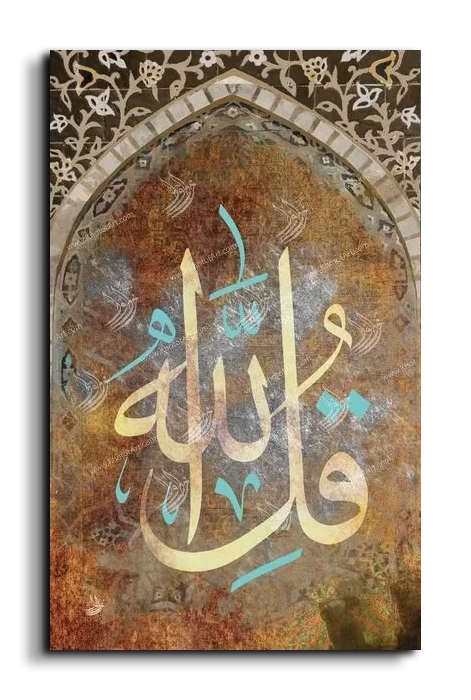 قُلِ اللَّهُ